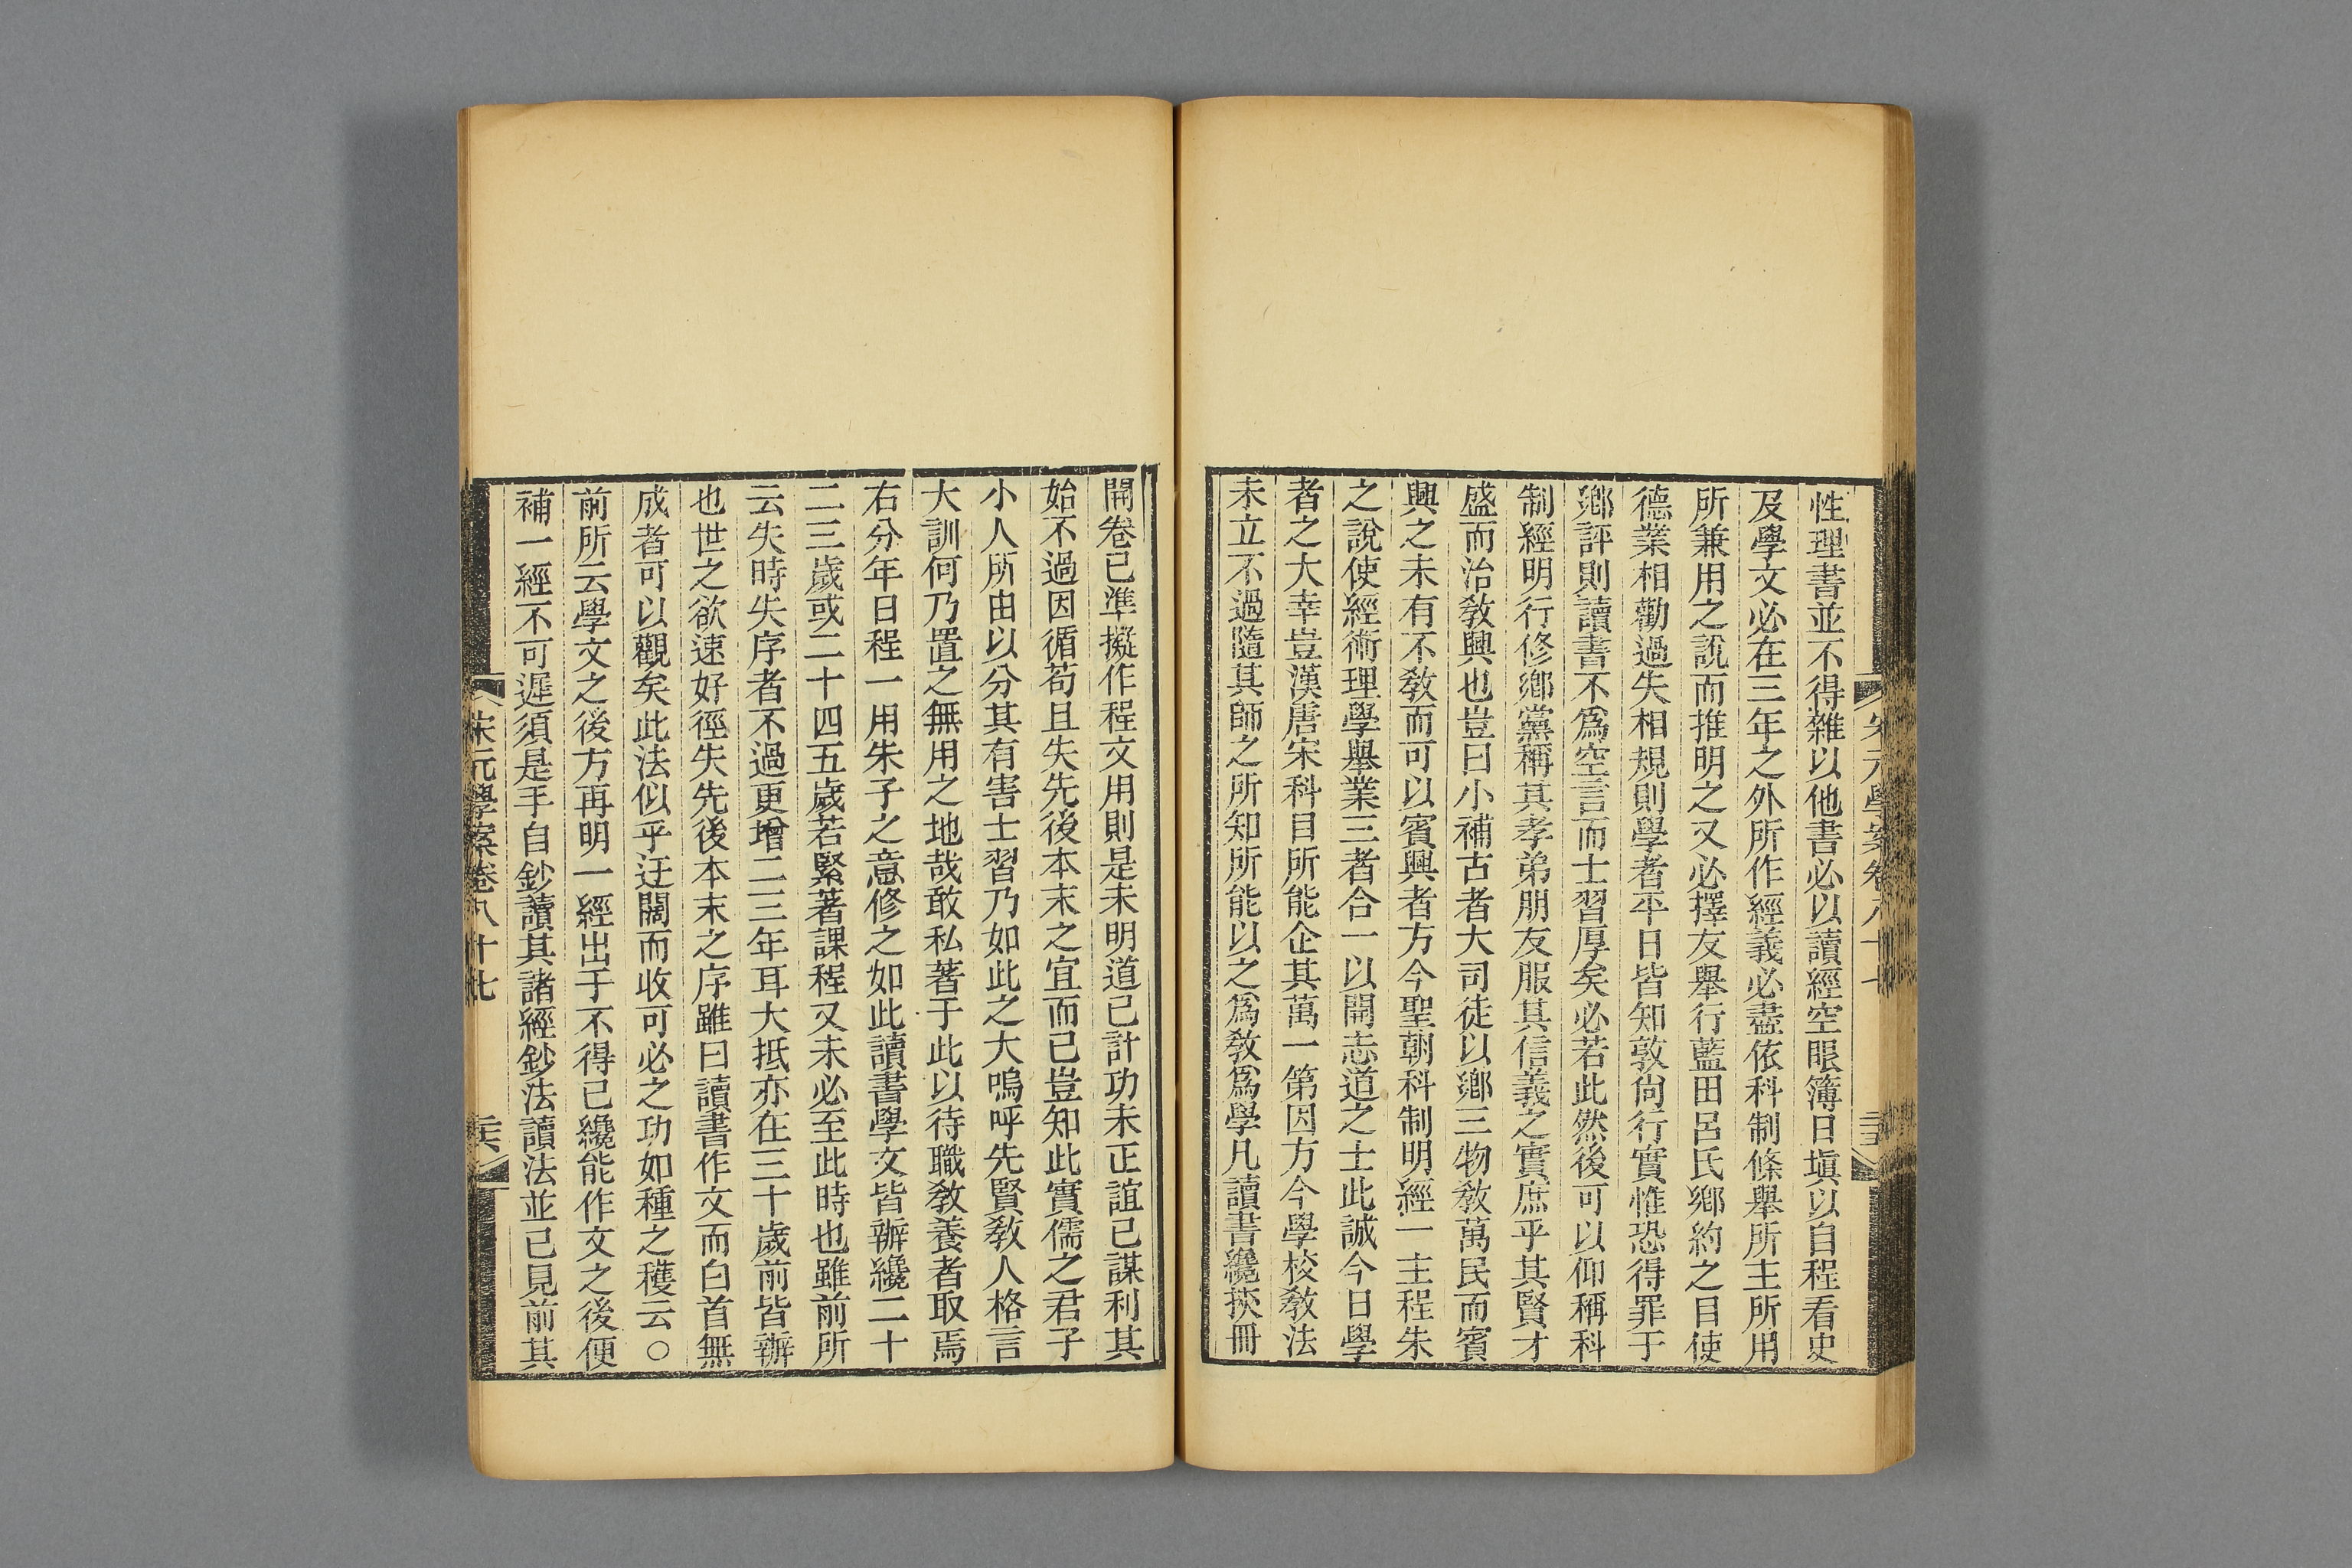 性理書並不得雜以他書必以讀經空眼簿日塡以自程看史
及學文必在三年之外所作經義必盡依科制條舉所主所用
所兼用之說而推明之又必擇友舉行藍田呂氏鄉約之目使
德業相勸過失相規則學者平日皆知敦尙行實惟恐得罪于
鄉評則讀書不爲空言而士習厚矣必若此然後可以仰稱科
制經明行修鄉黨稱其孝弟朋友服其信義之實庶乎其賢才
盛而治敎興也豈曰小補古者大司徒以鄉三物敎萬民而賓
興之未有不敎而可以賓興者方今聖朝科制明經一主程朱
之說使經術理學舉業三者合一以開志道之士此誠今日學
者之大幸豈漢唐宋科目所能企其萬一第因方今學校敎法
未立不過隨其師之所知所能以之爲敎爲學凡讀書纔挾冊
開卷已準擬作程文用則是未明道已計功未正誼已謀利其
始不過因循苟且失先後本末之宜而已豈知此實儒之君子
小人所由以分其有害士習乃如此之大嗚呼先賢敎人格言
大訓何乃置之無用之地哉敢私著于此以待職敎養者取焉
右分年日程一用朱子之意修之如此讀書學文皆辦纔二十
二三歲或二十四五歲若緊著課程又未必至此時也雖前所
云失時失序者不過更增二三年耳大抵亦在三十歲前皆辦
也世之欲速好徑失先後本末之序雖曰讀書作文而白首無
成者可以觀矣此法似乎迂闊而收可必之功如種之穫云○
前所云學文之後方再明一經出于不得已纔能作文之後便
補一經不可遲須是手自鈔讀其諸經鈔法讀法並已見前其
宋元學案卷八十七